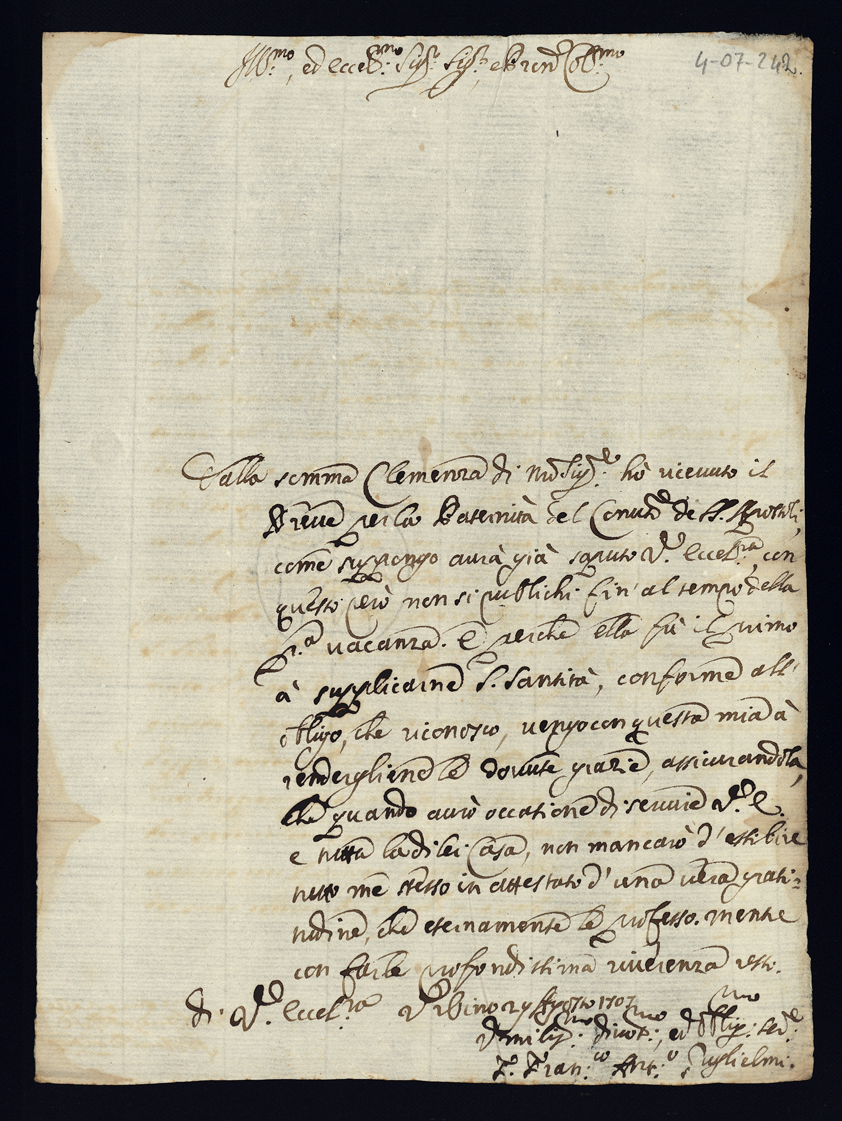 Ill.mo, ed Eccel.mo Sig.r Sig.r, e Pron Col.mo
4-07-242.
Dalla somma Clemenza di No Sig.e hò riceuuto il
Breue per la Paternità del Conuto de SS. Apostoli,
come suppongo aurà già saputo V. Eccel.ra, con
questo però non si publichi fin' al tempo della
p.a uacanza. E perche ella fù il primo
à supplicarne S. Santità, conforme all'
obligo, che riconosco, vengo con questa mia à
rendergliene le douute grazie, assicurandola,
che quando aurò occatione di seruire V. E.
e tutta la di lei Casa, non mancarò d'essibire
tutto me stesso in attestato d'una uera grati-
tudine, che eternamente le professo. mentre
con farle profondissima riuerenza resto.
di V. Eccel.ra Vrbino 29 Agosto 1707
Vmilis.mo diuot.mo, ed Oblig.mo Ser.e
F. Fran.co Ant.o Guglielmi.